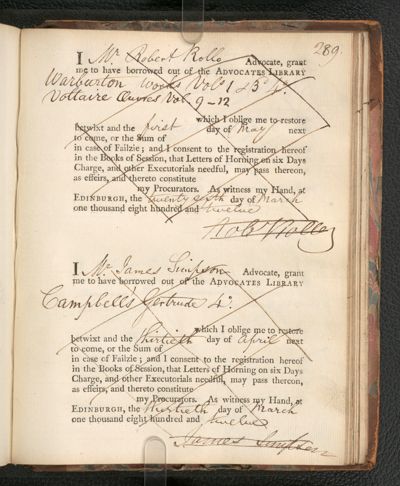 289.
I Mr. Robert Rollo Advocate, grant
me to have borrowed out of the ADVOCATES LIBRARY
Warburton Works Vols 1 & 3d 4o.
Voltaire Œuvres Vol. 9-12
which I oblige me to restore
betwixt and the first day of May next
to come, or the Sum of
in case of Failzie; and I consent to the registration hereof
in the Books of Session, that Letters of Horning on six Days
Charge, and other Executorials needful, may pass thereon,
as effeirs, and thereto constitute
my Procurators. As witness my Hand, at
EDINBURGH, the twenty sixth day of March
one thousand eight hundred and twelve
Robt. Rollo
I Mr. James Simpson Advocate, grant
me to have borrowed out of the ADVOCATES LIBRARY
Campbells Gertrude 4o.
which I oblige me to restore
betwixt and the thirtieth day of April next
to come, or the Sum of
in case of Failzie; and I consent to the registration hereof
in the Books of Session, that Letters of Horning on six Days
Charge, and other Executorials needful, may pass thereon,
as effeirs, and thereto constitute
my Procurators. As witness my Hand, at
EDINBURGH, the thirtieth day of March
one thousand eight hundred and twelve
James Simpson